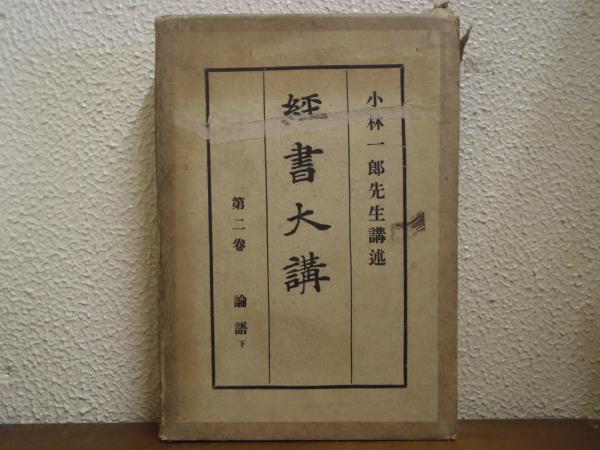 小林一郎先生講述
經書大講
第二卷 論語下